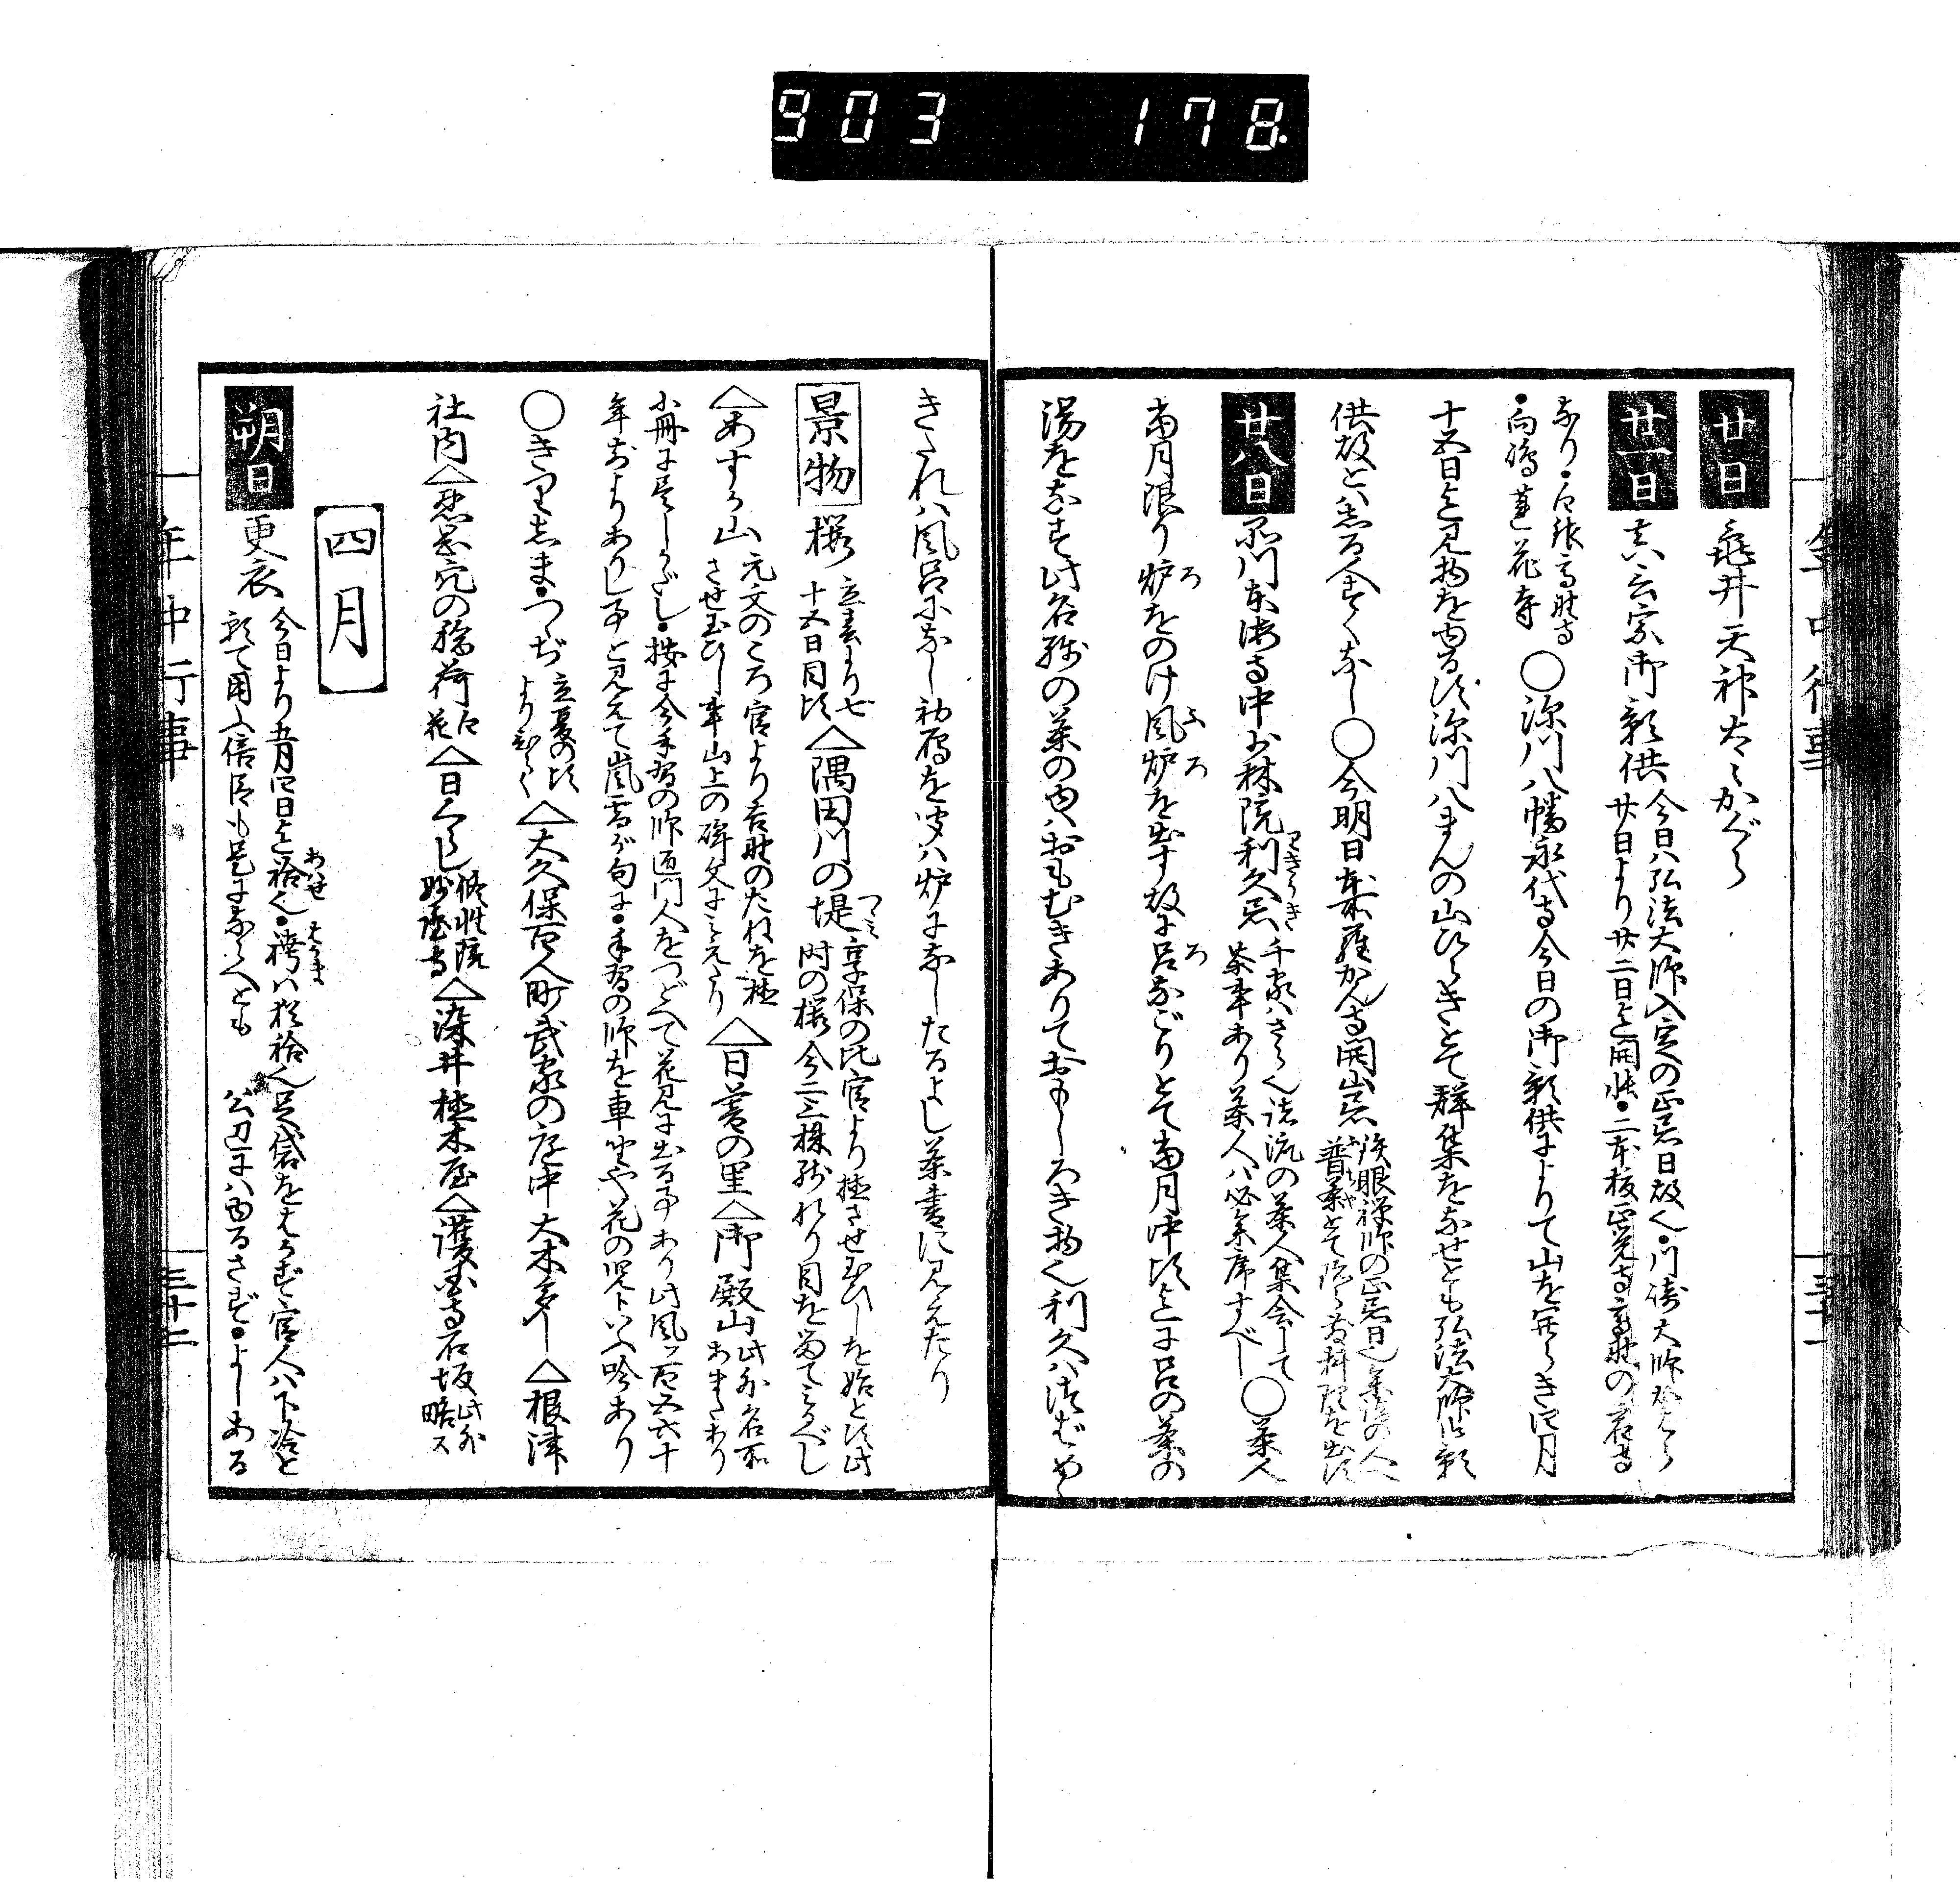 903 178
年中行事
三十一
廿日 亀井天神太々かぐら
廿一日 真言宗御影供 今日ハ弘法大師入定の正忌日故也・川崎大師
廿日より廿二日迄開帳・二本榎正覚寺高野の宿寺
なり・
・向嶋蓮花寺 ○深川八幡永代寺今日の御影供によりて山を開らき四月
十五日迄見物をゆるす深川八まんの山びらきとて群集をなせども弘法大師御影
供故とハしる人すくなし ○今明日 羅かん寺開山忌 鉄眼禅師の正忌日也参詣の人へ
普茶とて
廿八日 品川東海寺中少林院利久忌 千家ハさら也諸流の茶人集会して
茶事あり茶人ハ必参席すべし ○茶人
当月限り炉をのけ風炉を出す故に呂なごりとて当月中頃迄に呂の茶の
湯をなす此名残の茶の内ハおもむきありておもしろき物也利久ハ
きされハ風呂になし初雁を聞ハ炉になしたるよし茶書に見えたり
景物 桜 立春より七
十五日目頃 △隅田川の堤 享保の比官より植させ玉ひしを始とす此
時の桜今二三株残れり目を留てミるべし
△あすか山 元文のころ官より吉野のたねを植
させ玉ひし事山上の碑文にミえたり △日暮の里△御殿山 此外名所
あまたあり
小冊に尽しがたし・按に今手習の師匠門人をつどへて花見に出る事あり此風ハ百五六十
年前よりありし事と見えて嵐雪が句に・手習の師を車座や花の児トいへ吟あり
○きりしま・つゝぢ 立夏の頃
よりひらく △大久保百人町武家の庭中大木多し △根津
社内 の稲荷 △日ぐらし 修性院
妙隆寺 △染井植木屋△護国寺石坂 此外
略ス
四月
朔日 更衣 今日より五月四日迄袷也・袴ハ 袷也足袋をはかず官人ハ下冷と
称て用ふ倍臣も是にならへども 公辺にハゆるさず・よしある
年中行事
三十二